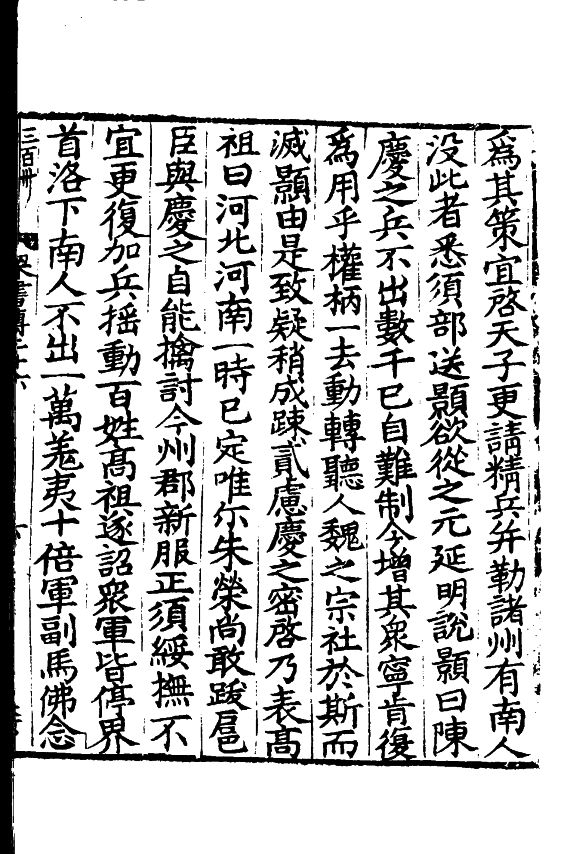 為其策宜啓天子更請精兵并勒諸州有南人
没此者悉須部送顥欲從之元延明說顥曰陳
慶之兵不出數千已自難制今增其衆寧肯復
為用乎權柄一去動轉聽人魏之宗社於斯而
滅顥由是致疑稍成踈貳慮慶之密啓乃表髙
祖曰河北河南一時已定唯尒朱榮尚敢跋扈
臣與慶之自能擒討今州郡新服正須綏撫不
宜更復加兵揺動百姓髙祖遂詔衆軍皆停界
首洛下南人不出一萬羗夷十倍軍副馬佛念
三百卅
梁書傳二十六